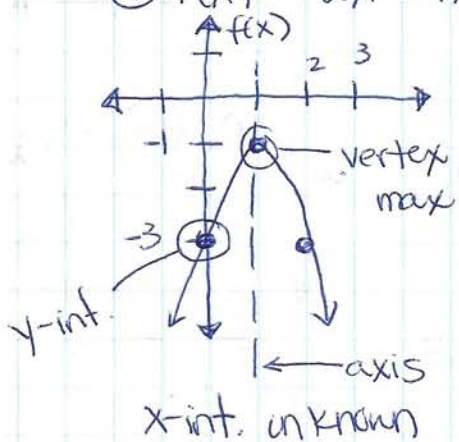 f(x)
2 3
-1
vertex
max
-3
y-int.
axis
x-int. unknown